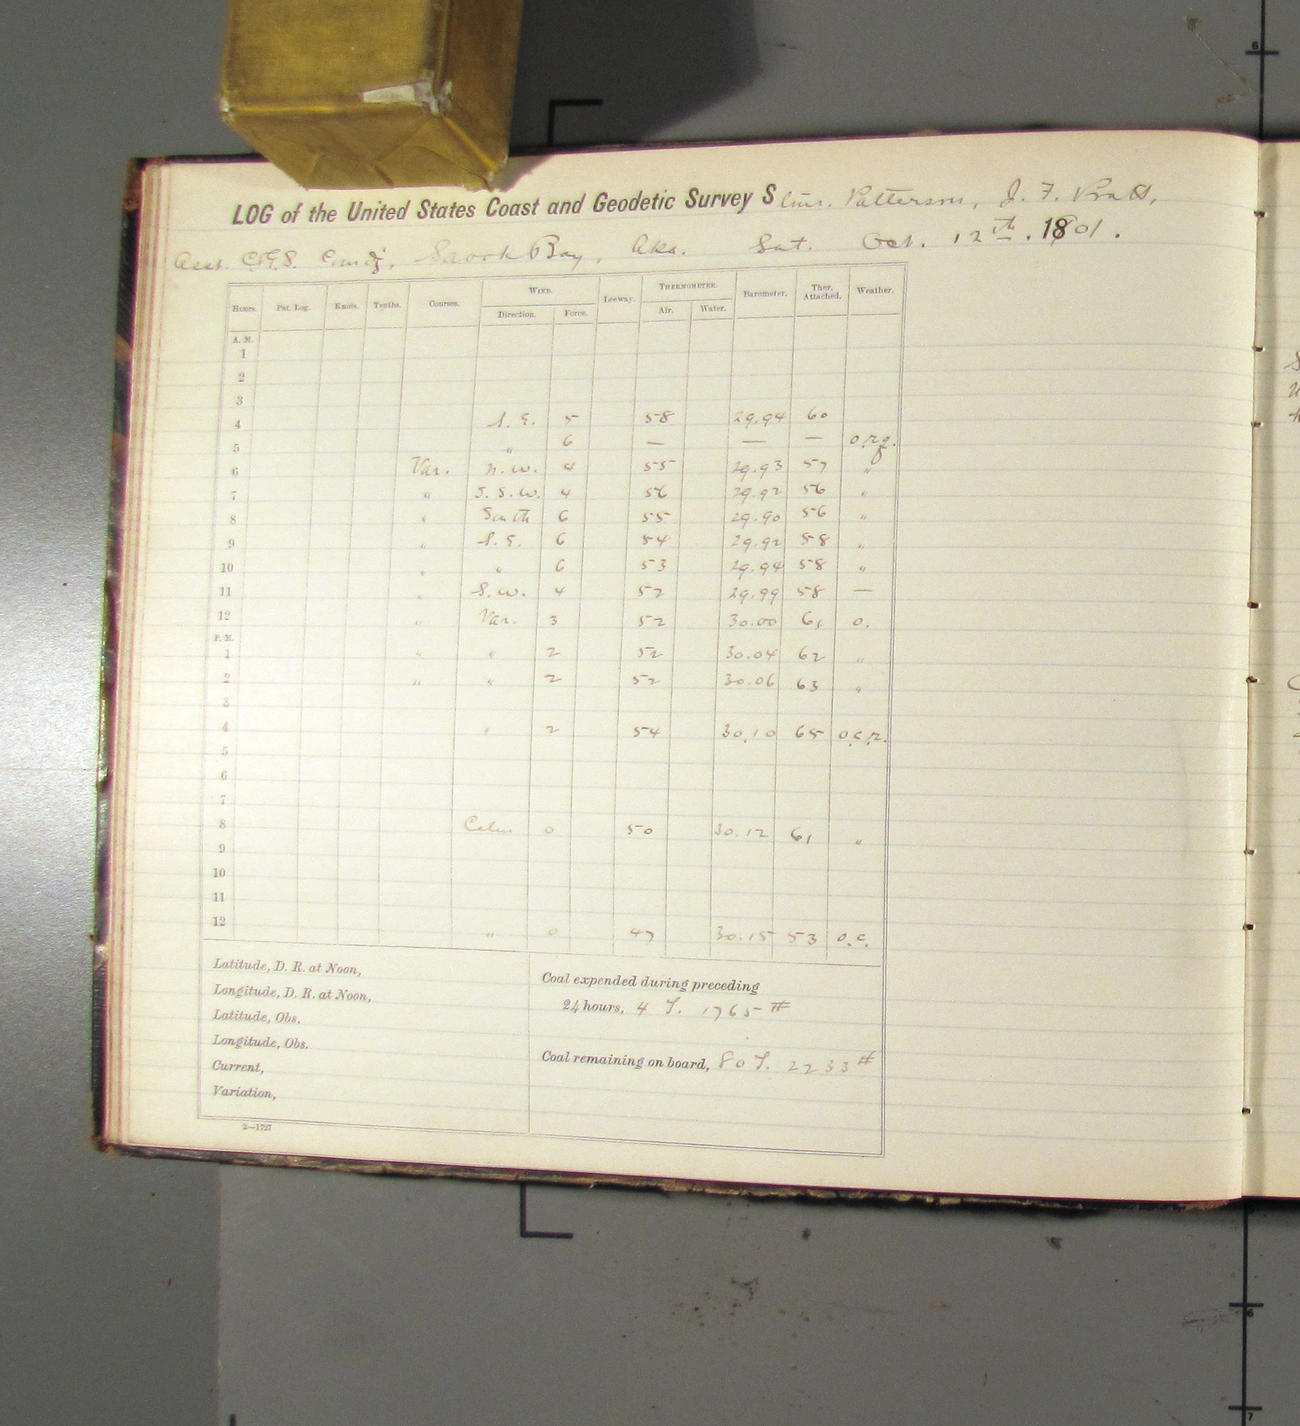 LOG of the United States Coast and Geodetic Survey Stmr. Patterson, J. F. Pratt,
Asst. C.&G.S. Comdg, Bay, Aka. Sat. Oct. 12th. 1801.
Hours. Pat. Log. Knots. Tenths. Courses. WIND. Direction. Force. Leeway. THERMOMETER. Air. Water. Barometer. Ther. Attached. Weather.
A. M.
1
2
3
4 S. E. 5 58 29.94 60
5 " 6 — — — o.r.q.
6 Var. N. W. 4 55 29.93 57 "
7 " S. S. W. 4 56 29.92 56 "
8 " South 6 55 29.90 56 "
9 " S. E. 6 54 29.92 58 "
10 " " 6 53 29.94 58 "
11 " S. W. 4 52 29.99 58 —
12 " Var. 3 52 30.00 61 o.
P. M.
1 " " 2 52 30.04 62 "
2 " " 2 52 30.06 63 "
3
4 " 2 54 30.10 65 o.c.r.
5
6
7
8 Calm 0 50 30.12 61 "
9
10
11
12 " 0 47 30.15 53 o.c.
Latitude, D. R. at Noon,
Longitude, D. R. at Noon,
Latitude, Obs.
Longitude, Obs.
Current,
Variation,
Coal expended during preceding
24 hours, 4 T. 1765 #
Coal remaining on board, 80 T. 2233 #
2—1727
6
6
7